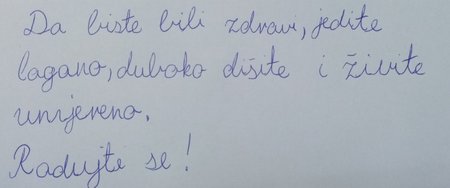 Da biste bili zdravi, jedite
lagano, duboko dišite i živite
umjereno.
Radujte se!